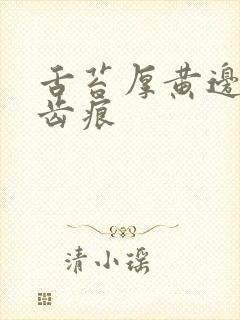 舌苔厚黄邊
齿痕
清小瑶